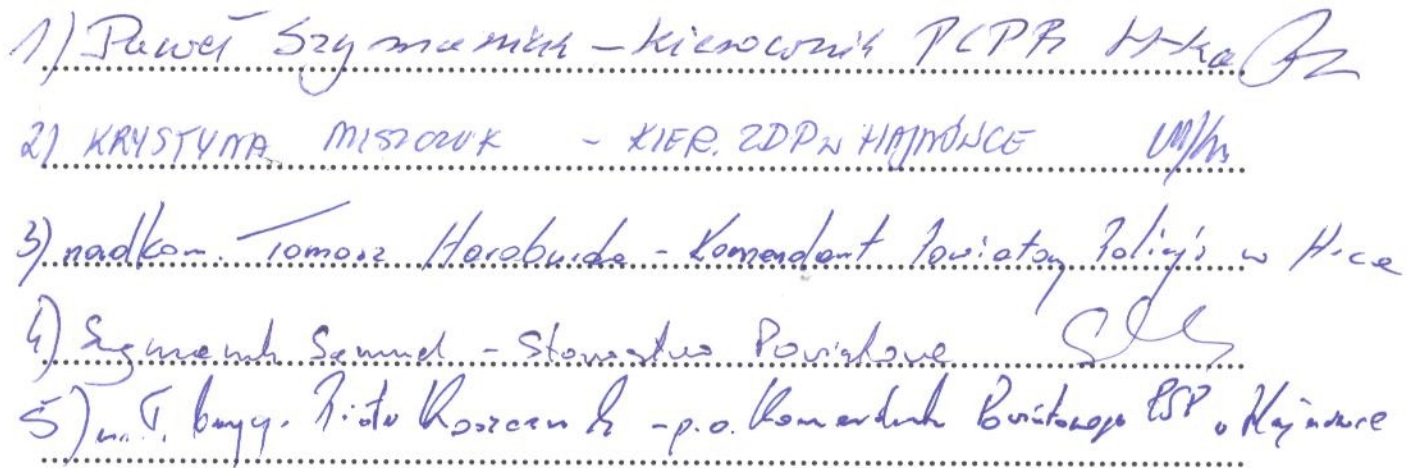 1) Paweł Szymaniuk - kierownik PCPR H-ka
2) KRYSTYNA MISZCZUK - KIER. ZDP W HAJNÓWCE
3) nadkom. Tomasz Haraburda - Komendant Powiatowy Policji w H-ce
4) Szymaniuk Samuel - Starostwo Powiatowe
5) mł. bryg. Piotr - p.o. Komendanta Powiatowego PSP w Hajnówce